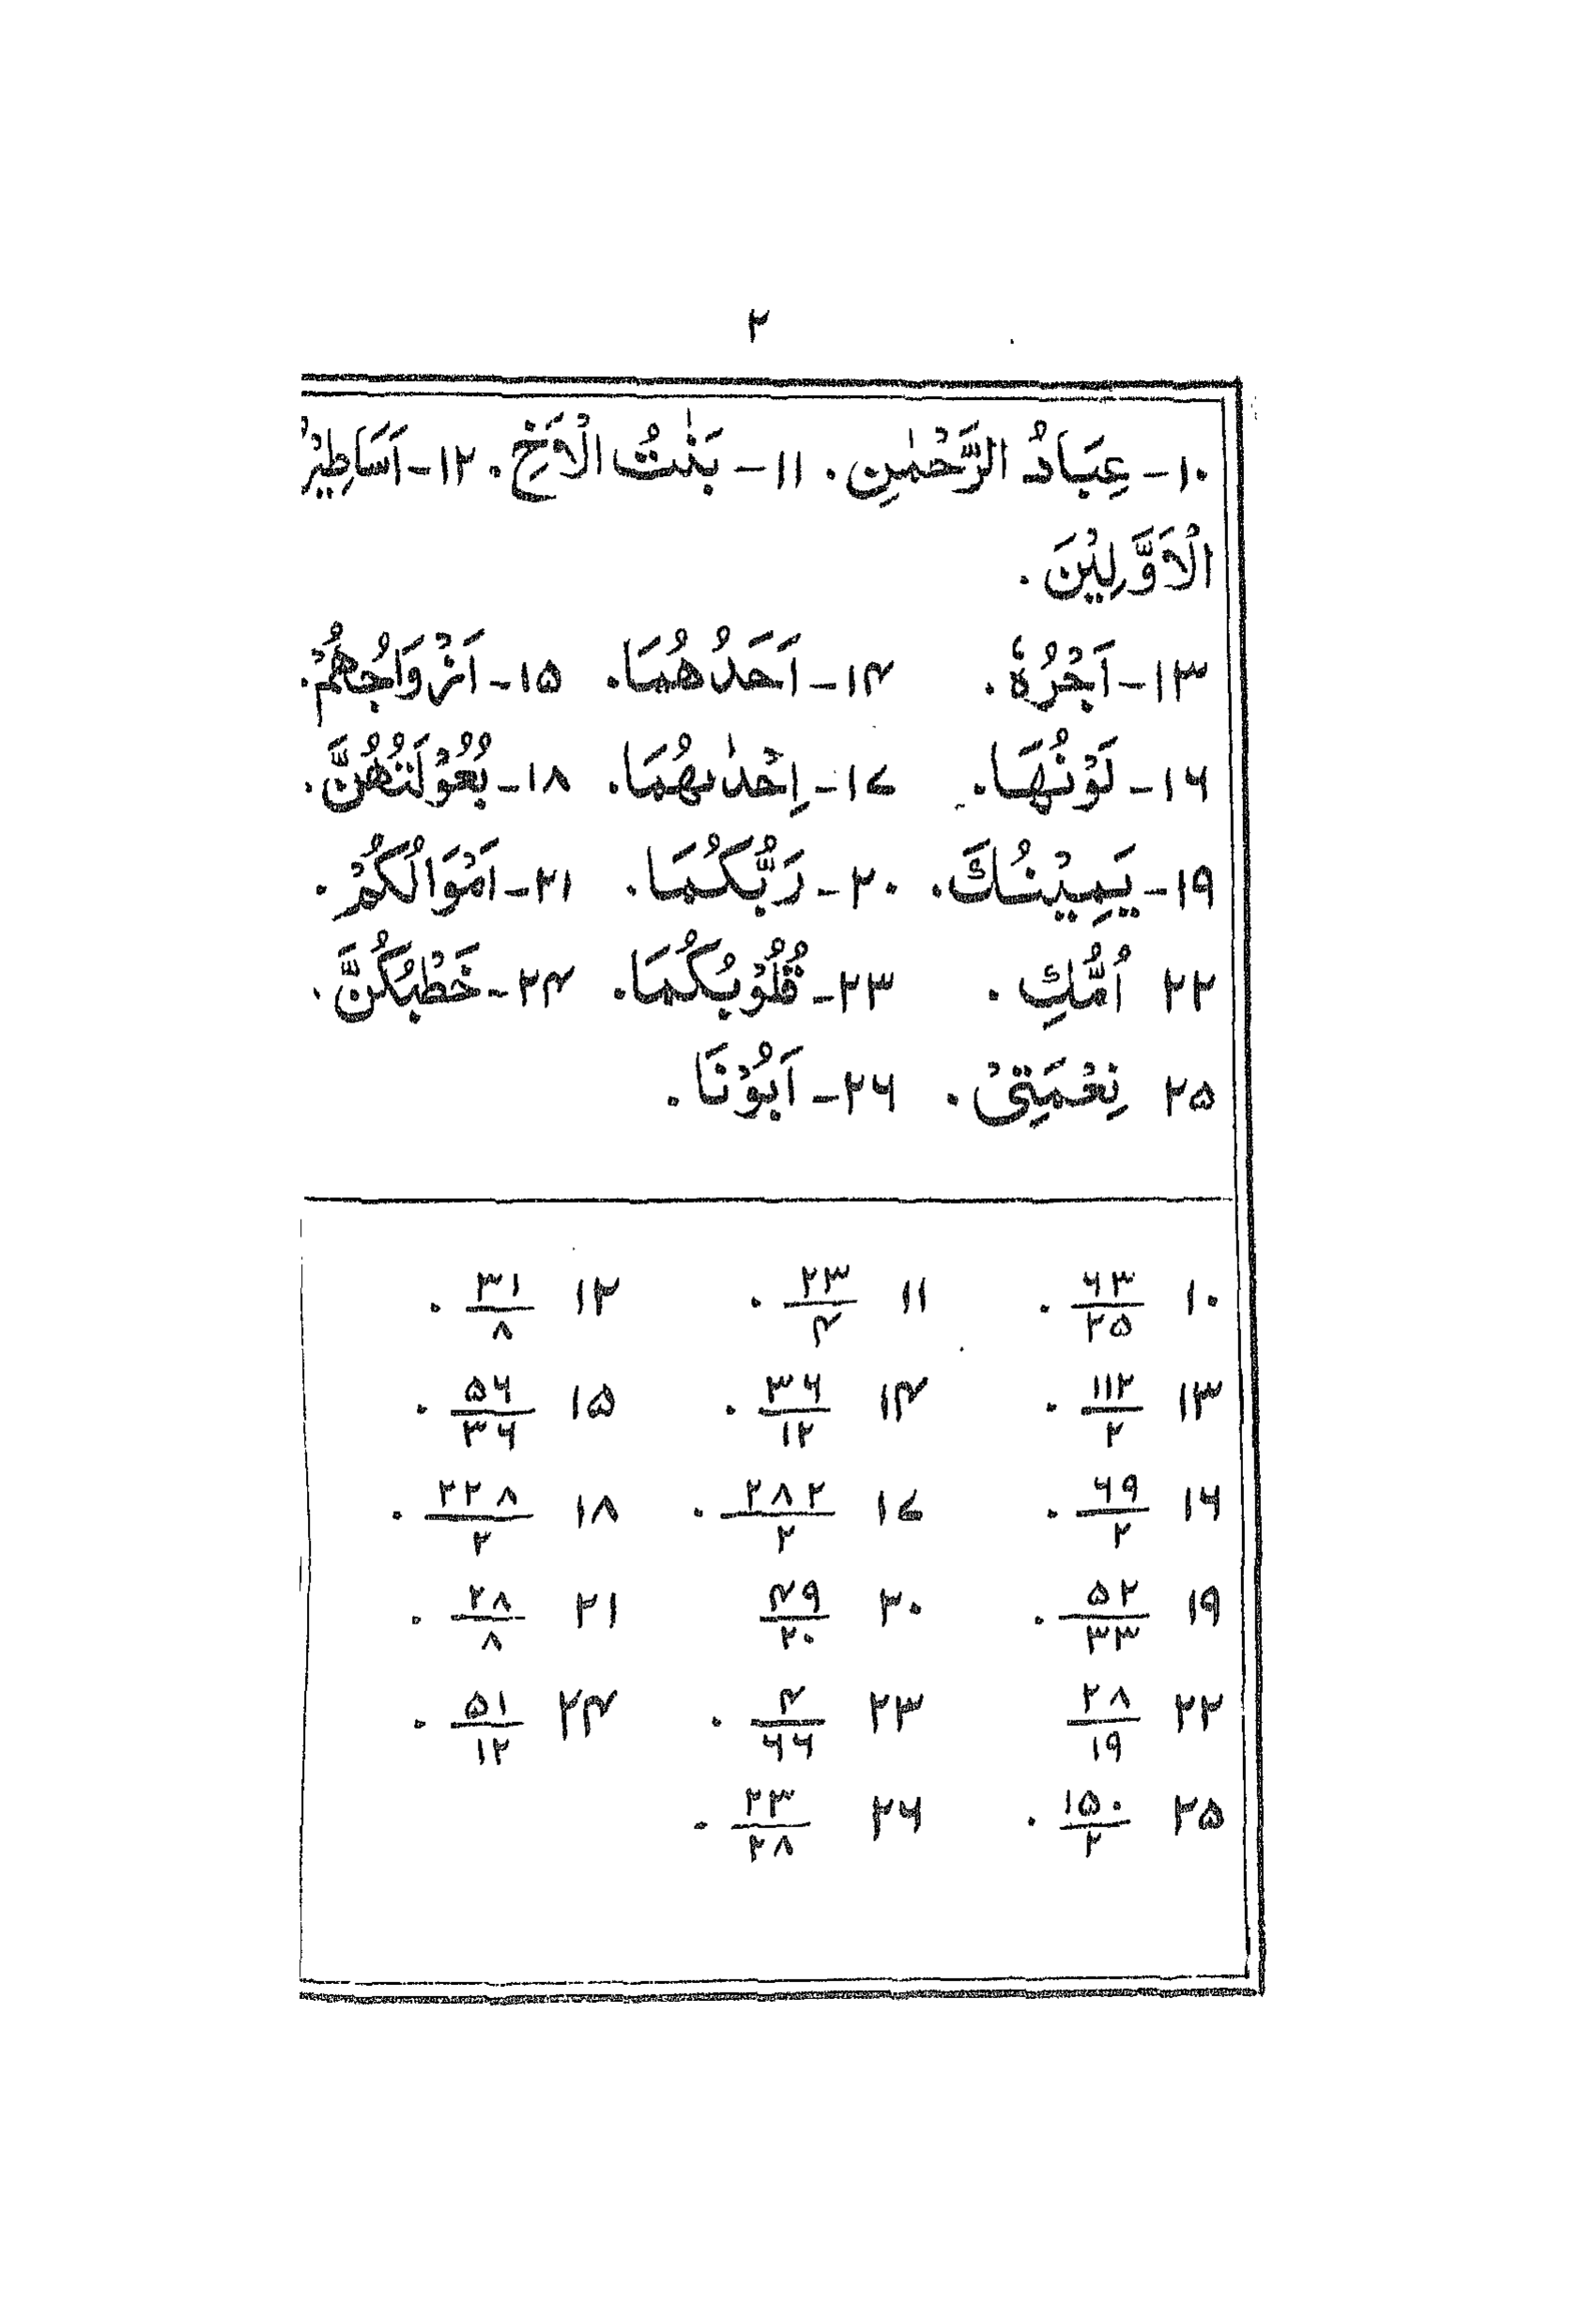 ۲
۱۰- عِبَادُ الرَّحْمٰنِ. ۱۱- بَنٰتُ الْاَخِ. ۱۲- اَسَاطِيْرُ
الْاَوَّلِيْنَ.
۱۳- اَجْرُهٗ. ۱۴- اَحَدُهُمَا. ۱۵- اَزْوَاجُهُمْ.
۱۶- لَوْنُهَا. ۱۷- اِحْدٰىهُمَا. ۱۸- بُعُوْلَتُهُنَّ.
۱۹- يَمِيْنُكَ. ۲۰- رَبُّكُمَا. ۲۱- اَمْوَالُكُمْ.
۲۲ اُمُّكِ. ۲۳- قُلُوْبُكُمَا. ۲۴- خَطْبُكُنَّ.
۲۵ نِعْمَتِىْ. ۲۶- اَبُوْنَا.
۱۰ ۶۳/۲۵. ۱۱ ۲۳/۴. ۱۲ ۳۱/۸.
۱۳ ۱۱۲/۲. ۱۴ ۳۶/۱۲. ۱۵ ۵۶/۳۶.
۱۶ ۶۹/۲. ۱۷ ۲۸۲/۲. ۱۸ ۲۲۸/۲.
۱۹ ۵۲/۳۳. ۲۰ ۴۹/۲۰ ۲۱ ۲۸/۸.
۲۲ ۲۸/۱۹ ۲۳ ۴/۶۶. ۲۴ ۵۱/۱۲.
۲۵ ۱۵۰/۲. ۲۶ ۲۳/۲۸.